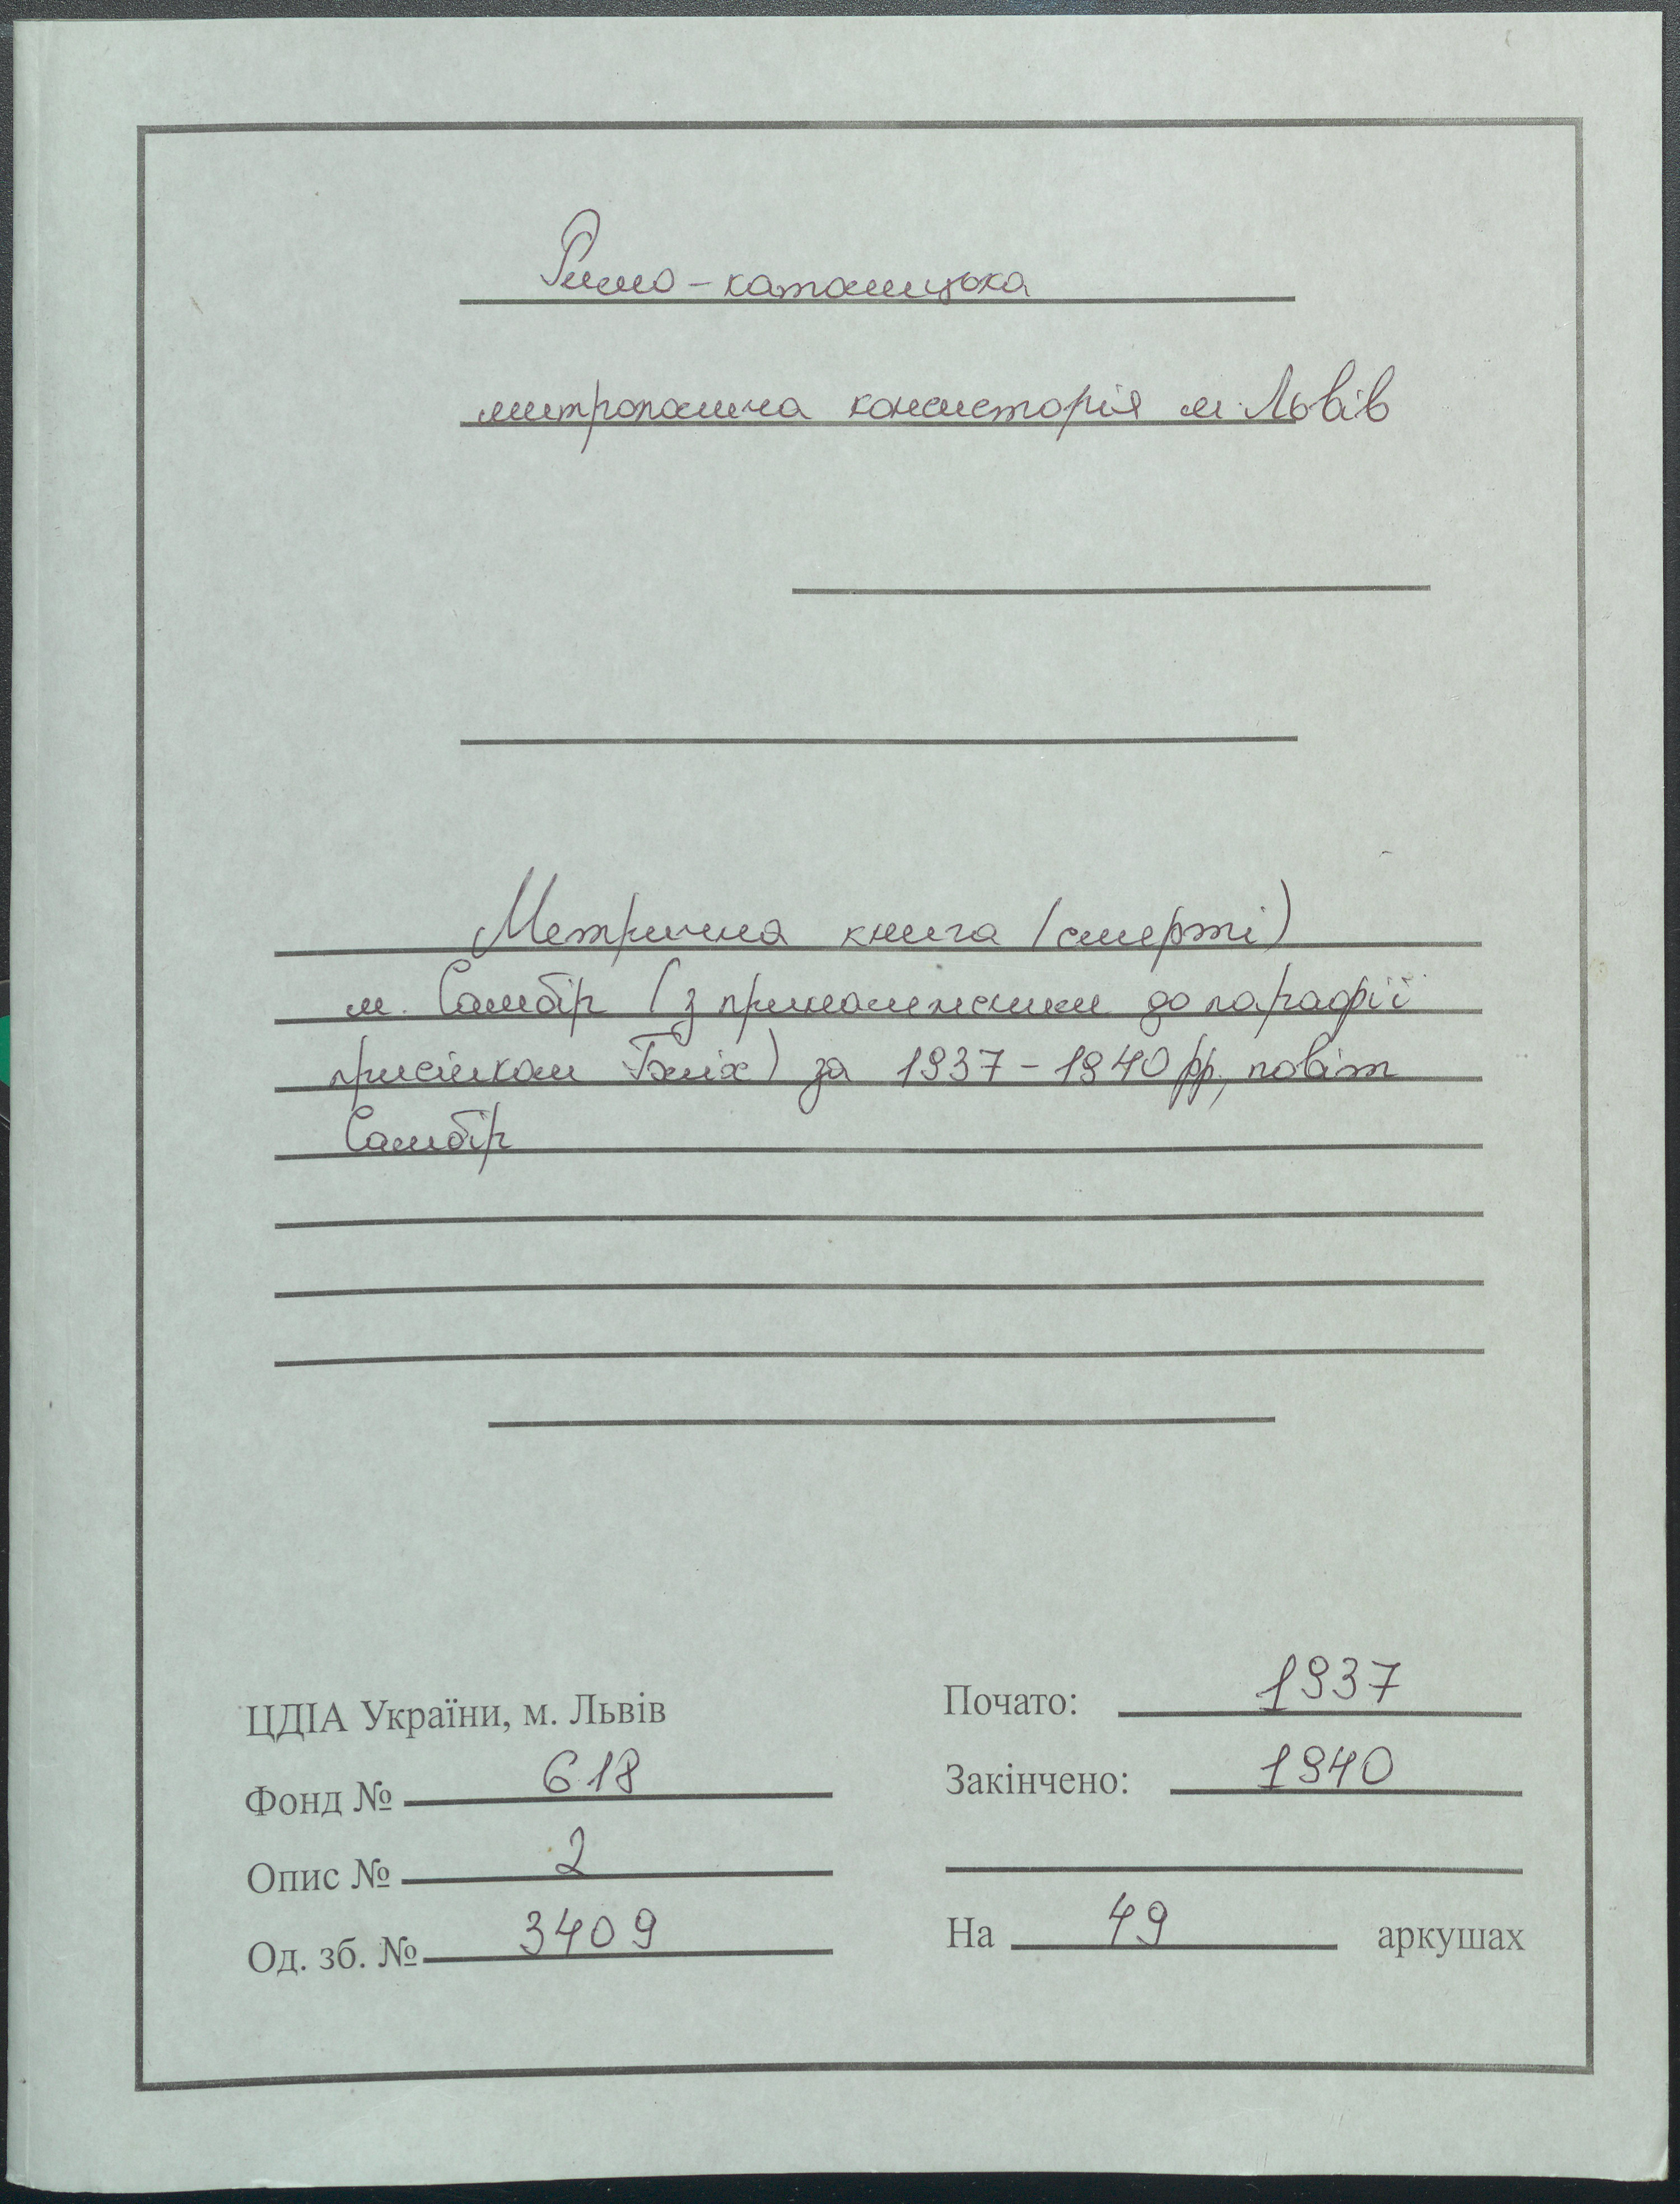 Римо-католицька
митрополича консисторія м. Львів
Метрична книга (смерті)
м. Самбір (з приналежним до парафії
присілком Бліх) за 1937-1940 рр., повіт
Самбір
ЦДІА України, м. Львів
Фонд № 618
Опис № 2
Од. зб. № 3409
Почато: 1937
Закінчено: 1940
На 49 аркушах